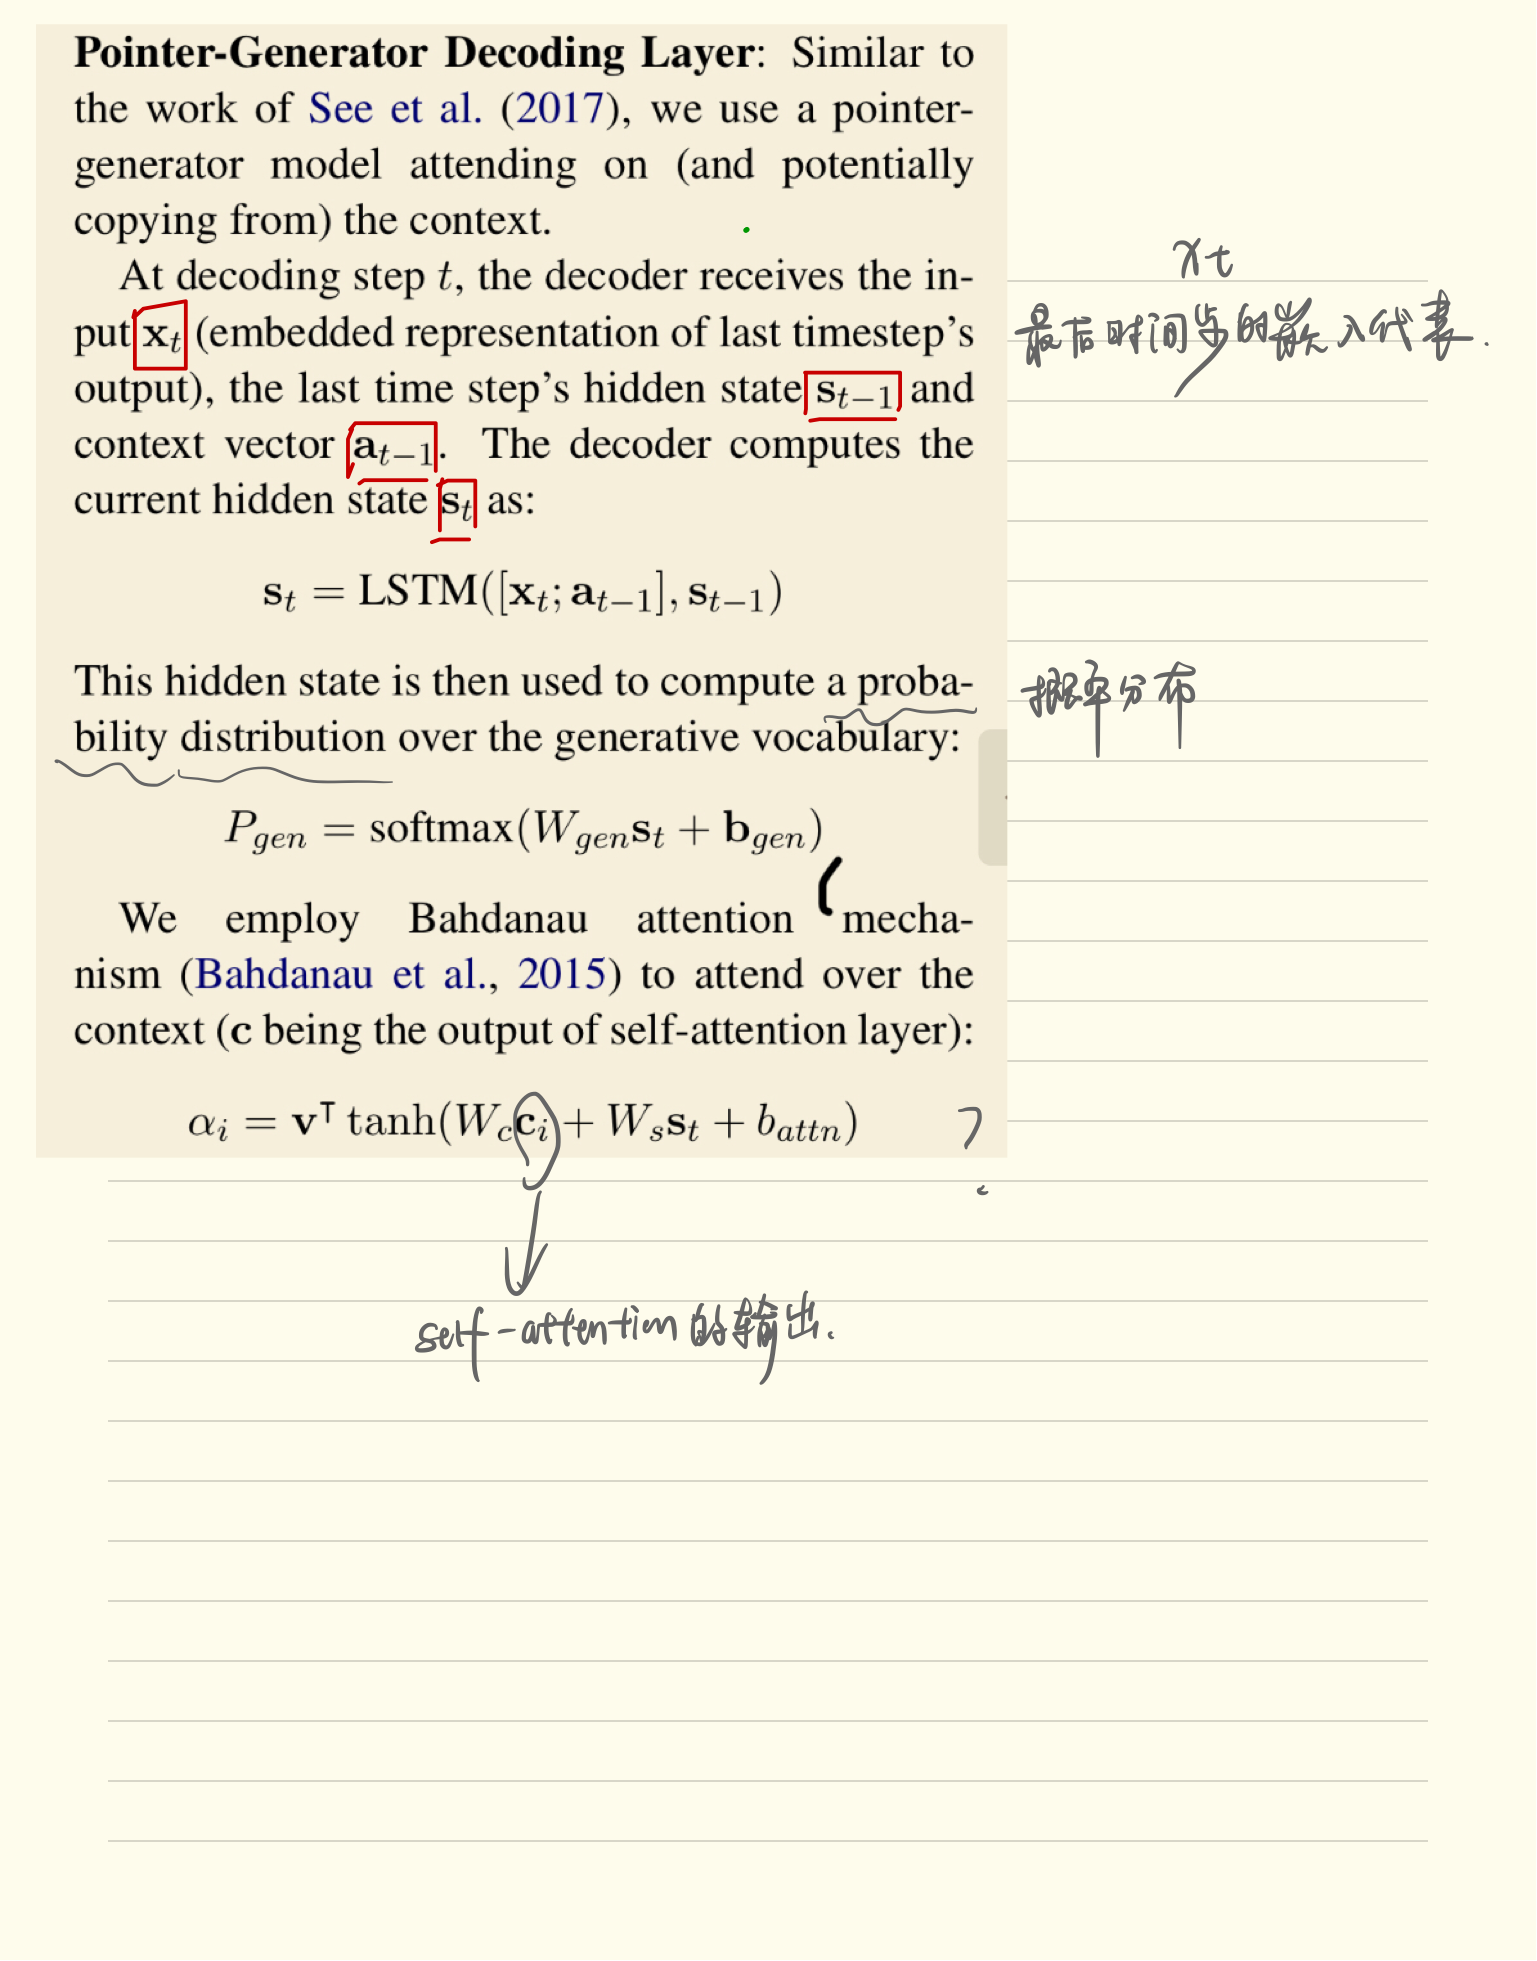 Pointer-Generator Decoding Layer: Similar to
the work of See et al. (2017), we use a pointer-
generator model attending on (and potentially
copying from) the context.
At decoding step t, the decoder receives the in-
put x_t (embedded representation of last timestep's
output), the last time step's hidden state s_{t−1} and
context vector a_{t−1}. The decoder computes the
current hidden state s_t as:
s_t = LSTM([x_t; a_{t−1}], s_{t−1})
This hidden state is then used to compute a proba-
bility distribution over the generative vocabulary:
P_{gen} = softmax(W_{gen}s_t + b_{gen})
We employ Bahdanau attention mecha-
nism (Bahdanau et al., 2015) to attend over the
context (c being the output of self-attention layer):
α_i = v^⊤ tanh(W_c c_i + W_s s_t + b_{attn})
?
self-attention的输出.
x_t
最后时间步的嵌入代表.
概率分布